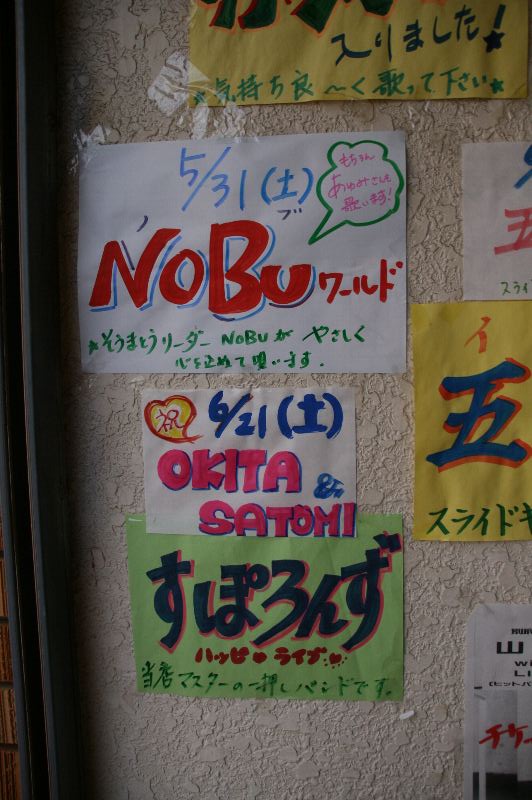 入りました!
★気持ち良〜く歌って下さい★
5/31(土)
もちろん
あゆみさんも
歌います!
ノ ブ
NOBUワールド
★そうまとうリーダー NOBUが やさしく
心を込めて唄います。
祝 6/21(土)
OKITA &
SATOMI
すぽろんず
ハッピー♥ライブ♥
当店マスターの一押しバンドです。
五
スライ
イ
五
スライドギ
W
LI
チケ